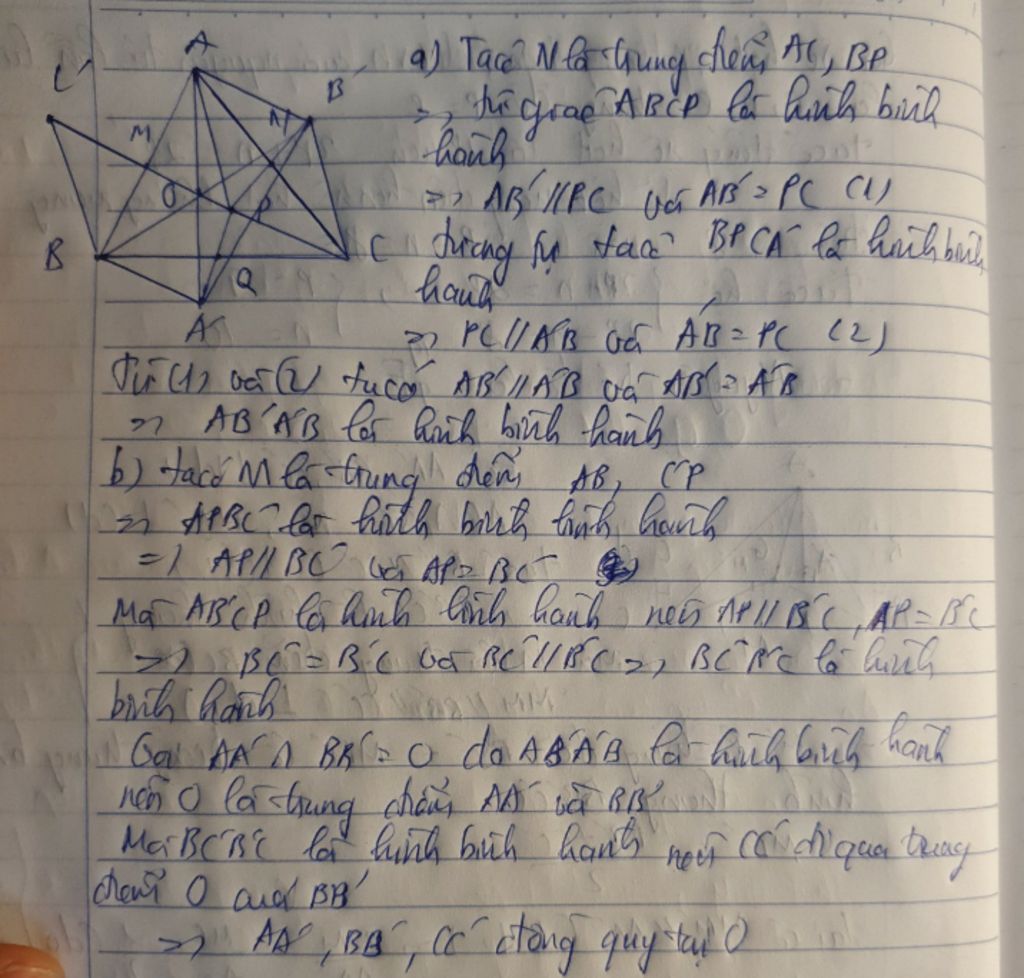 A
C'
B'
M
N
O
P
B
C
Q
A'
a) Ta có N là trung điểm AC, B'P
=> tứ giác AB'CP là hình bình
hành
=> AB' // PC và AB' = PC (1)
tương tự ta có BPCA' là hình bình
hành
=> PC // A'B và A'B = PC (2)
Từ (1) và (2) ta có AB' // A'B và AB' = A'B
=> AB'A'B là hình bình hành
b) ta có M là trung điểm AB, C'P
=> APBC' là hình bình bình hành
=> AP // BC' và AP = BC'
Mà AB'CP là hình bình hành nên AP // B'C, AP = B'C
=> BC' = B'C và BC' // B'C => BC'B'C là hình
bình hành
Gọi AA' ∩ BB' = O do AB'A'B là hình bình hành
nên O là trung điểm AA' và BB'
Mà BC'B'C là hình bình hành nên CC' đi qua trung
điểm O của BB'
=> AA', BB', CC' đồng quy tại O